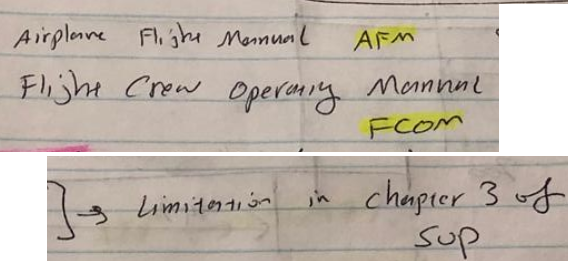 Airplane Flight Manual AFM
Flight Crew Operating Manual
FCOM
] → Limitation in chapter 3 of
SUP